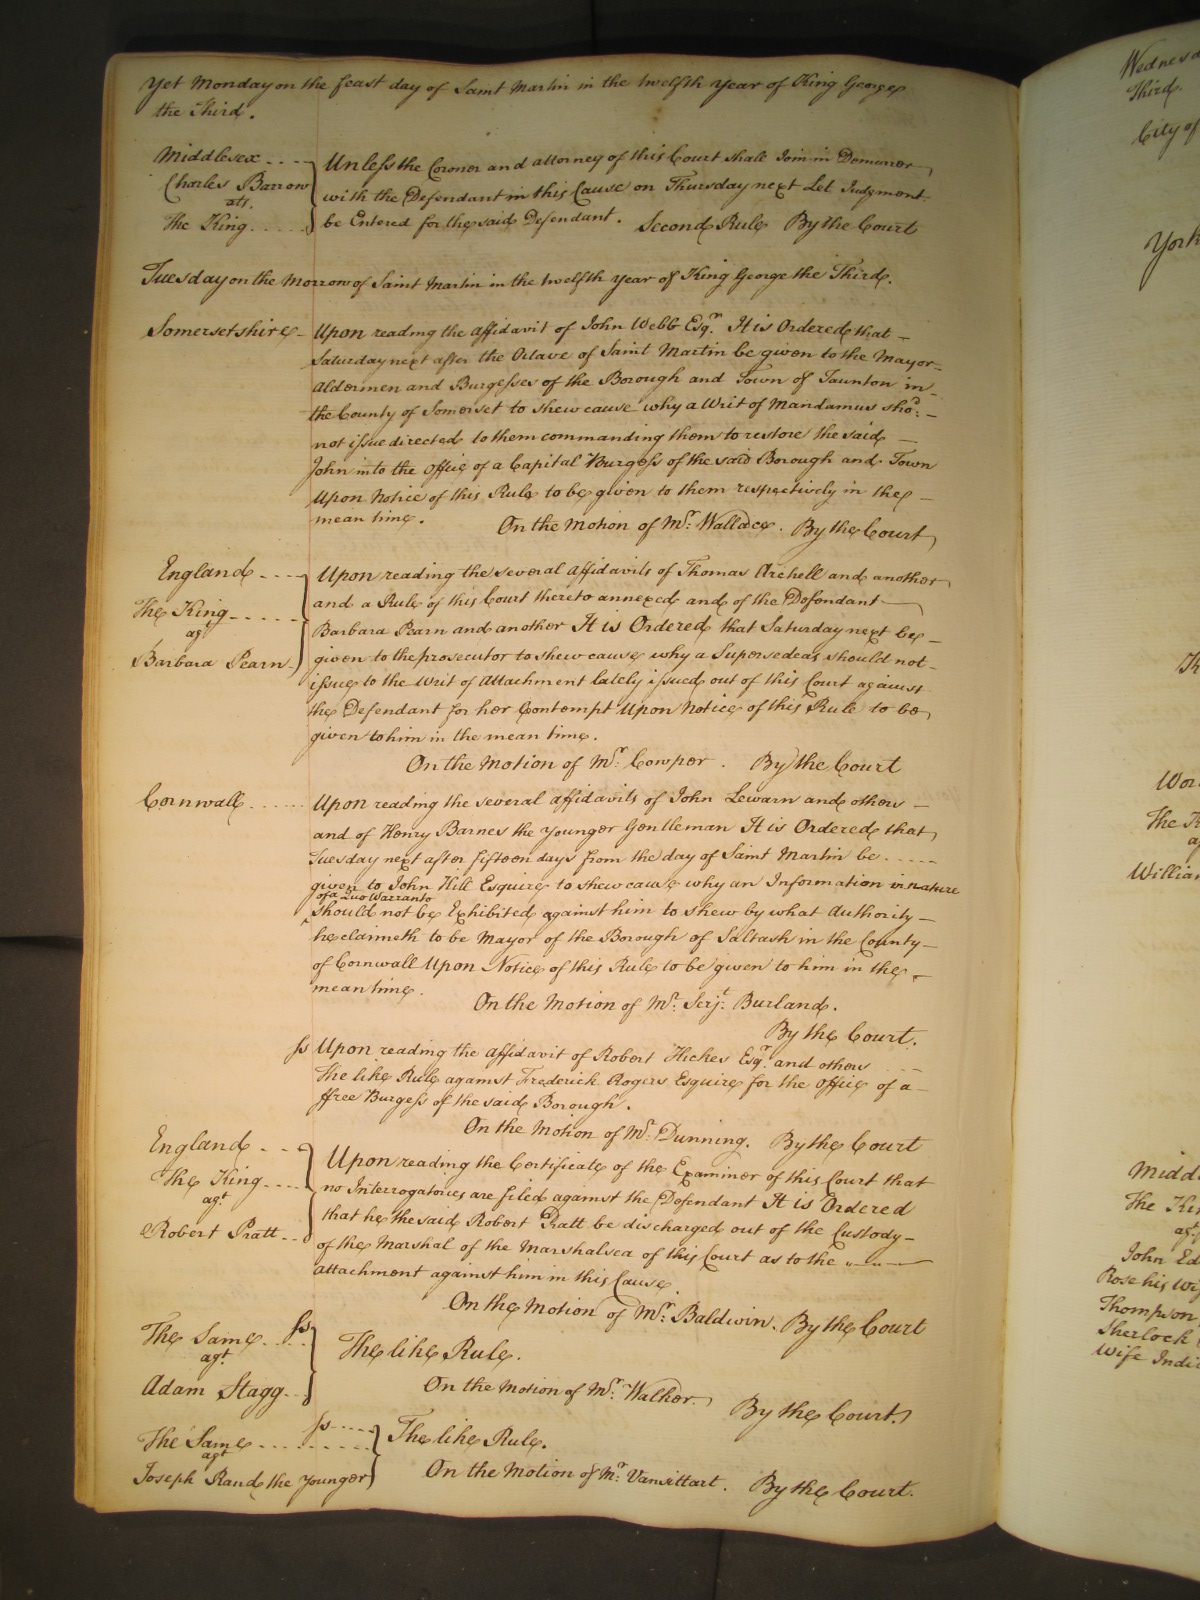 Yet Monday on the feast day of Saint Martin in the twelfth year of King George
the Third.
Middlesex
Charles Barrow
ats.
The King
Unless the Coroner and attorney of this Court shall Join in Demurrer
with the Defendant in this Cause on Thursday next Let Judgment
be Entered for the said Defendant. Second Rule By the Court
Tuesday on the Morrow of Saint Martin in the twelfth year of King George the Third.
Somersetshire
Upon reading the affidavit of John Webb Esqr. It is Ordered that
Saturday next after the Octave of Saint Martin be given to the Mayor
Aldermen and Burgesses of the Borough and Town of Taunton in
the County of Somerset to shew cause why a Writ of Mandamus sho'd.
not issue directed to them commanding them to restore the said
John into the office of a Capital Burgess of the said Borough and Town
Upon Notice of this Rule to be given to them respectively in the
mean time. On the Motion of Mr. Wallace. By the Court
England
The King
agt
Barbara Pearn
Upon reading the several affidavits of Thomas Archell and another
and a Rule of this Court thereto annexed and of the Defendant
Barbara Pearn and another It is Ordered that Saturday next be
given to the prosecutor to shew cause why a Supersedeas should not
issue to the Writ of Attachment lately issued out of this Court against
the Defendant for her Contempt Upon Notice of this Rule to be
given to him in the mean time.
On the Motion of Mr. Cowper. By the Court
Cornwall
Upon reading the several affidavits of John Lewarn and others
and of Henry Barnes the younger Gentleman It is Ordered that
Tuesday next after fifteen days from the day of Saint Martin be
given to John Hill Esquire to shew cause why an Information in nature
of a Quo Warranto
should not be Exhibited against him to shew by what Authority
he claimeth to be Mayor of the Borough of Saltash in the County
of Cornwall Upon Notice of this Rule to be given to him in the
mean time. On the Motion of Mr. Serjt. Burland.
By the Court.
ss Upon reading the affidavit of Robert Hickes Esqr. and others
The like Rule against Frederick Rogers Esquire for the office of a
ffree Burgess of the said Borough.
On the Motion of Mr. Dunning. By the Court
England
The King
agt
Robert Pratt
Upon reading the Certificate of the Examiner of this Court that
no Interrogatories are filed against the Defendant It is Ordered
that he the said Robert Pratt be discharged out of the Custody
of the Marshal of the Marshalsea of this Court as to the
attachment against him in this Cause.
On the Motion of Mr. Baldwin. By the Court
The Same ss
agt.
Adam Stagg
The like Rule.
On the Motion of Mr. Walker. By the Court.
The Same ss
agt
Joseph Rand the younger
The like Rule.
On the Motion of Mr. Vansittart. By the Court.
Third.
City of
York
The K
William
Midd
The Kin
agt.
John Ed
Rose his Wif
Thompson
Sherlock
Wife Indi